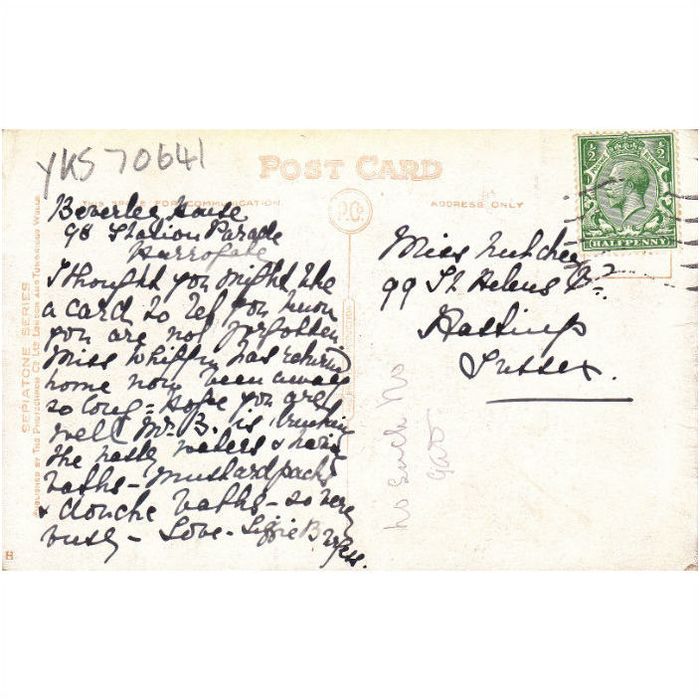 YKS 70641
POST CARD
THIS SPACE FOR COMMUNICATION.
ADDRESS ONLY
P.Co.
½ ½
HALFPENNY
SEPIATONE SERIES
PUBLISHED BY THE PHOTOCHROM CO. LTD. LONDON AND TUNBRIDGE WELLS
Beverley House
98 Station Parade
Harrogate
I thought you might like
a card to let you know
you are not forgotten
Miss Whiffin has returned
home now been away
so long - Hope you are
well Mr. B. is
the nasty waters & having
baths - mustard packs
& douche baths - so very
busy - Love - Lizzie B
Miss
99 St Helens Rd.
Hastings
Sussex.
No Such No
H